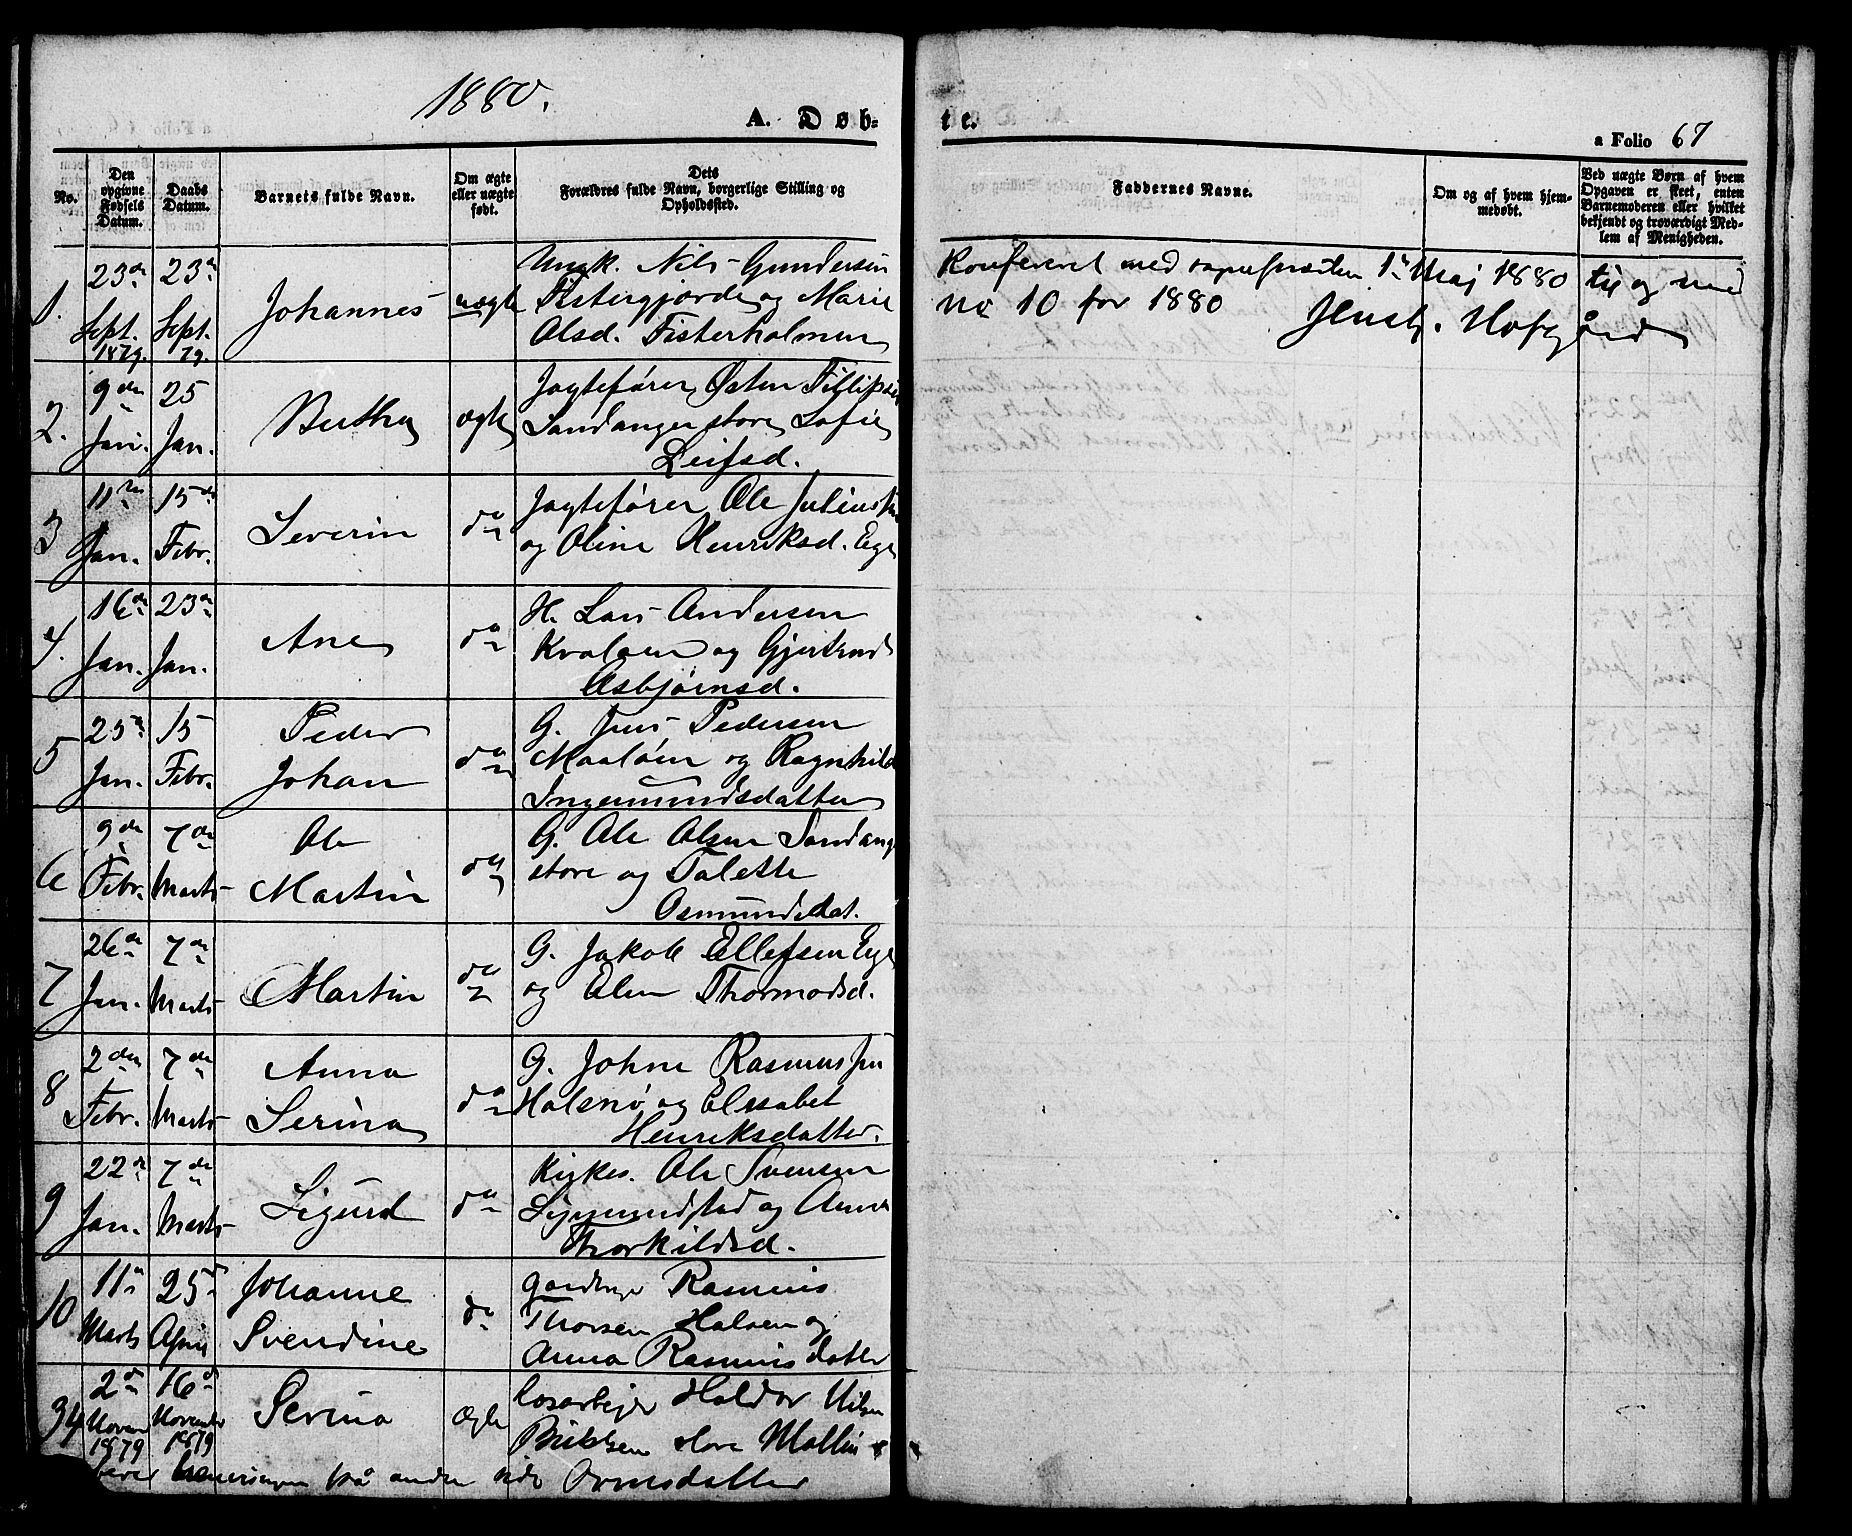 1880.
A. Døb-
te.
a Folio 67
No.
Den
opgivne
Fødsels
Datum.
Daabs
Datum.
Barnets fulde Navn.
Om ægte
eller uægte
født.
Dets
Forældres fulde Navn, borgerlige Stilling og
Opholdssted.
Faddernes Navne.
Om og af hvem hjem-
medøbt.
Ved uægte Børn af hvem
Opgaven er skeet, enten
Barnemoderen eller hvilket
bekjendt og troværdigt Med-
lem af Menigheden.
1. 23de Sept. 1879. 23de Sept. 79. Johannes uægte
Ungk. Nils Gundersen
Fistergjerde og Marie
Olsd. Fisterholmen
Konfereret med 1ste Maj 1880 til og med
No 10 for 1880 Hofgård
2. 9de Jan. 25 Jan. Bertha ægte
Jagtefører Østen Tillipsen
Landanger store, Sofie
Leifsd.
3 11te Jan. 15de Febr. Severin do
Jagtefører Ole
og Oline Henriksd. Eye
4. 16de Jan. 23de Jan. Ane do
H. Lars Andersen
Kvaløen og Gjertrud
Asbjørnsd.
5 25de Jan. 15 Febr. Peder Johan do
G. Jens Pedersen
Maaløen og Ragnhild
Ingemundsdatter
6 9de Febr. 7de Marts Ole Martin do
G. Ole Olsen Sandang
store og Talette
Osmundsdat.
7 26de Jan. 7de Marts Martin do
G. Jakob Ellefsen Eye
og Elen Thormodsd.
8 2den Febr. 7de Marts Anna Serina do
G. Johne Rasmussen
Halsnø og Elisabet
Henriksdatter.
9 22de Jan. 7de Marts Sigurd do
Kirkes. Ole Svensen
Sigmundstad og Anna
Thorkildsd.
10 11te Marts 25de April Johanne Svendine do
Gardbruger Rasmus
Thorsen Halsen og
Anna Rasmusdatter
34 2den Novem 1879 16de November 1879 Serina Ægte
Løsarbejder Haldor Nilsen
store Mallin
på andre side Ormsdatter